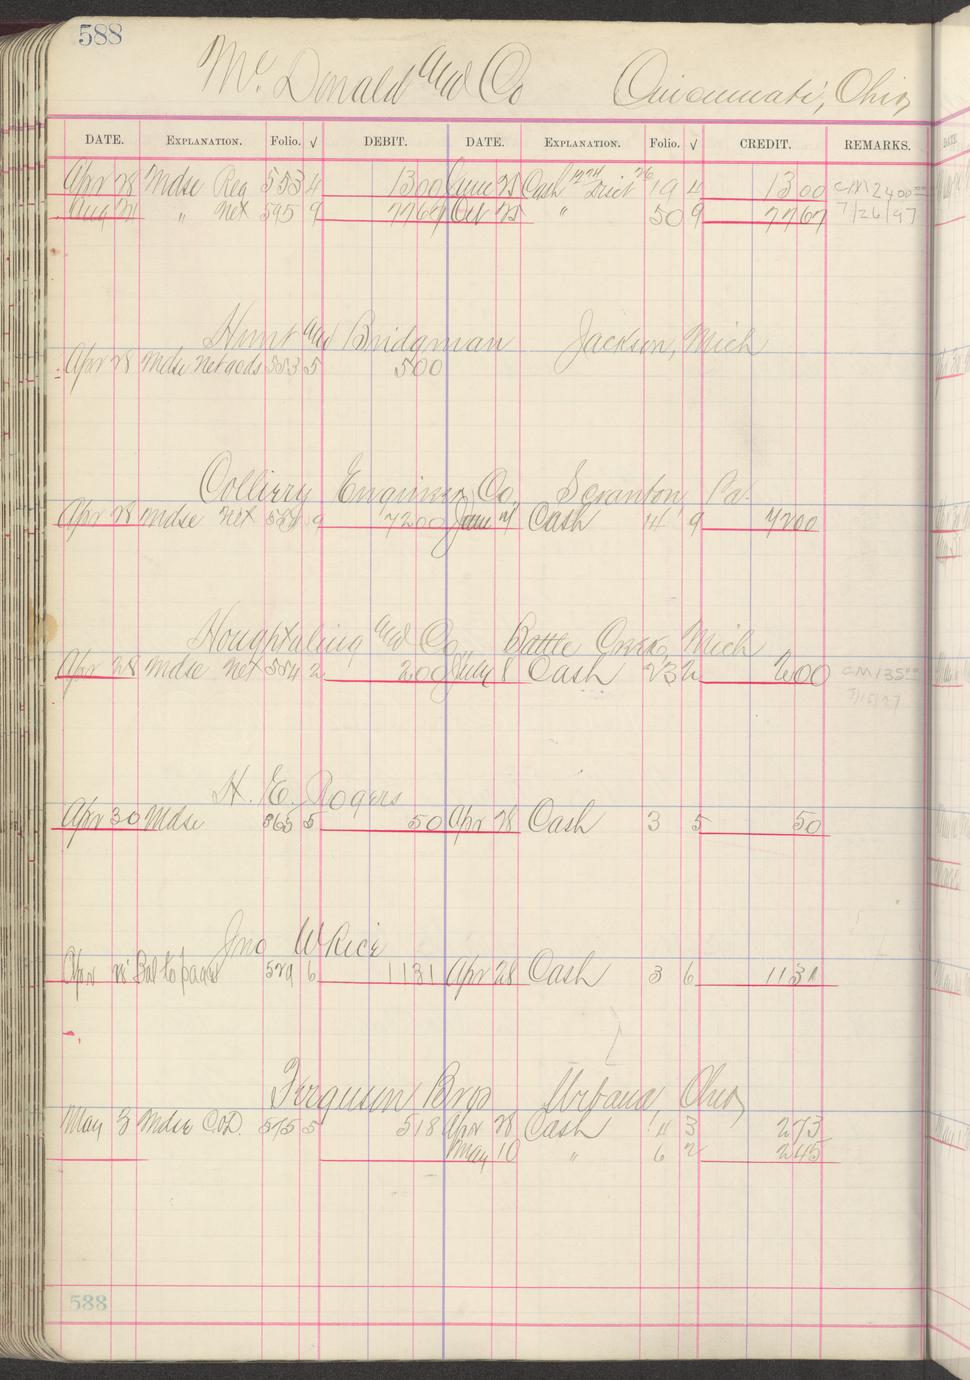 588
Mc Donald and Co Cincinnati, Ohio
DATE. EXPLANATION. Folio. √ DEBIT. DATE. EXPLANATION. Folio. √ CREDIT. REMARKS.
Apr 28 Mdse Reg 553 4 1300 June 25 Cash 19 4 1300 CM 2400
Aug 21 " Net 595 9 7767 Oct 25 " 50 9 7767 7/26/97
Hunt and Bridgman Jackson, Mich
Apr 28 Mdse Net gods 553 5 500
Colliery Engineer Co, Scranton, Pa.
Apr 28 Mdse Net 9 7200 June Cash 14 9 7200
Houghtaling and Co., Battle Creek, Mich
Apr 28 Mdse Net 554 2 200 July 8 Cash 23 2 200 CM 135
H. E. Rogers
Apr 30 Mdse 565 5 50 Apr 28 Cash 3 5 50
Jno W Rice
Apr Bal to 529 6 1131 Apr 28 Cash 3 6 1131
Ferguson Bros Urbana, Ohio
May 3 Mdse C.O.D. 575 5 518 Apr 28 Cash 4 3 273
May 10 " 6 2 245
588